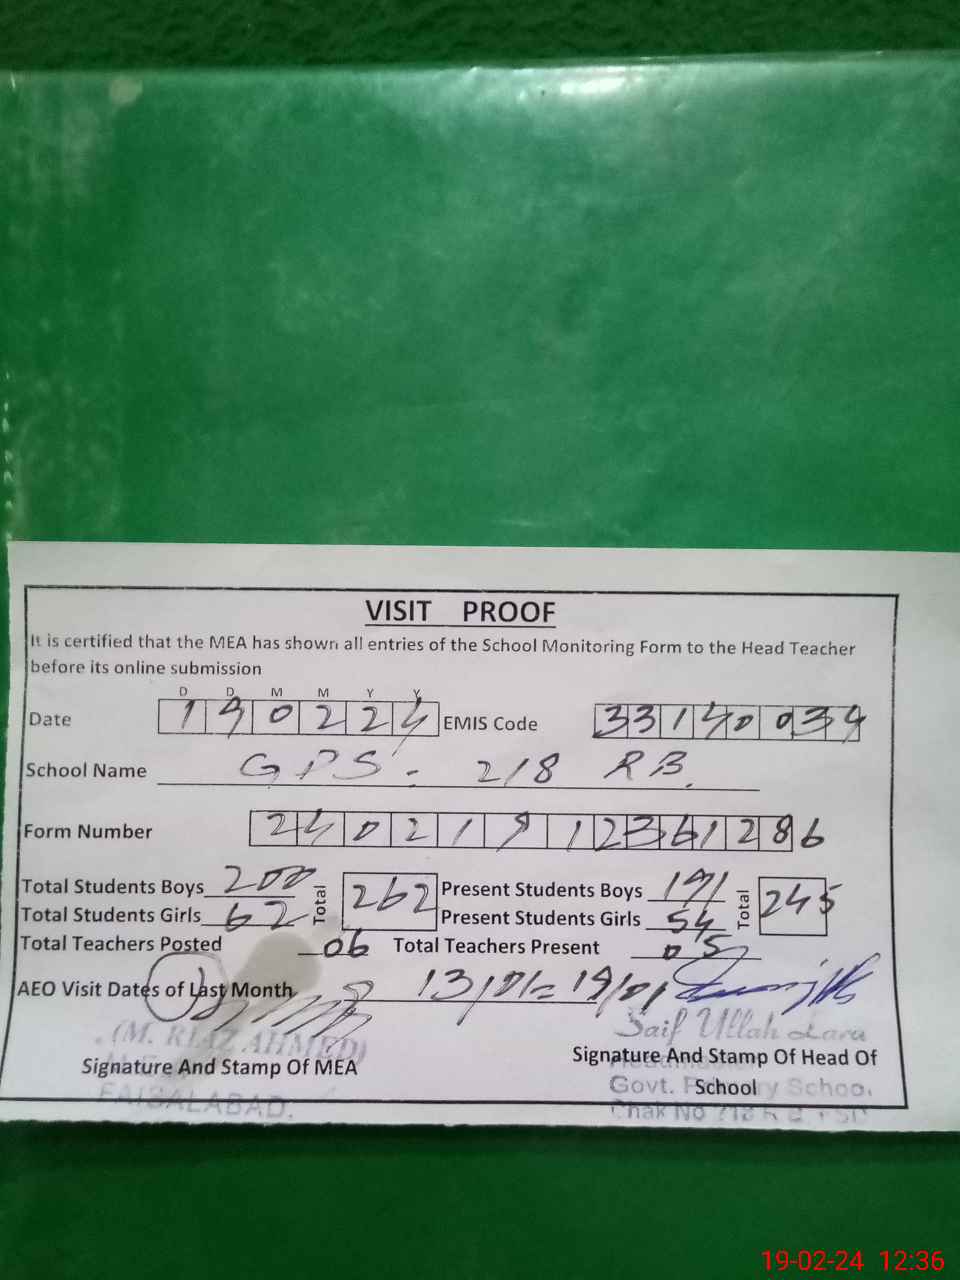 VISIT PROOF
It is certified that the MEA has shown all entries of the School Monitoring Form to the Head Teacher
before its online submission
D D M M Y Y
Date 190224 EMIS Code 33140034
School Name GPS. 218 RB.
Form Number 24021912361286
Total Students Boys 200 Total 262 Present Students Boys 191 Total 245
Total Students Girls 62 Present Students Girls 54
Total Teachers Posted 06 Total Teachers Present 05
AEO Visit Dates of Last Month 13/01 = 19/01
(M. RIAZ AHMED)
Saif Ullah
Signature And Stamp Of MEA
Signature And Stamp Of Head Of
School
FAISALABAD.
Govt. School
Chak No 218 R B FSD
19-02-24 12:36